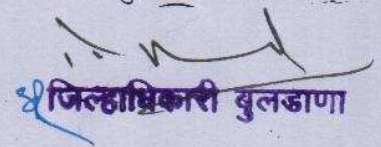 जिल्हाधिकारी बुलडाणा